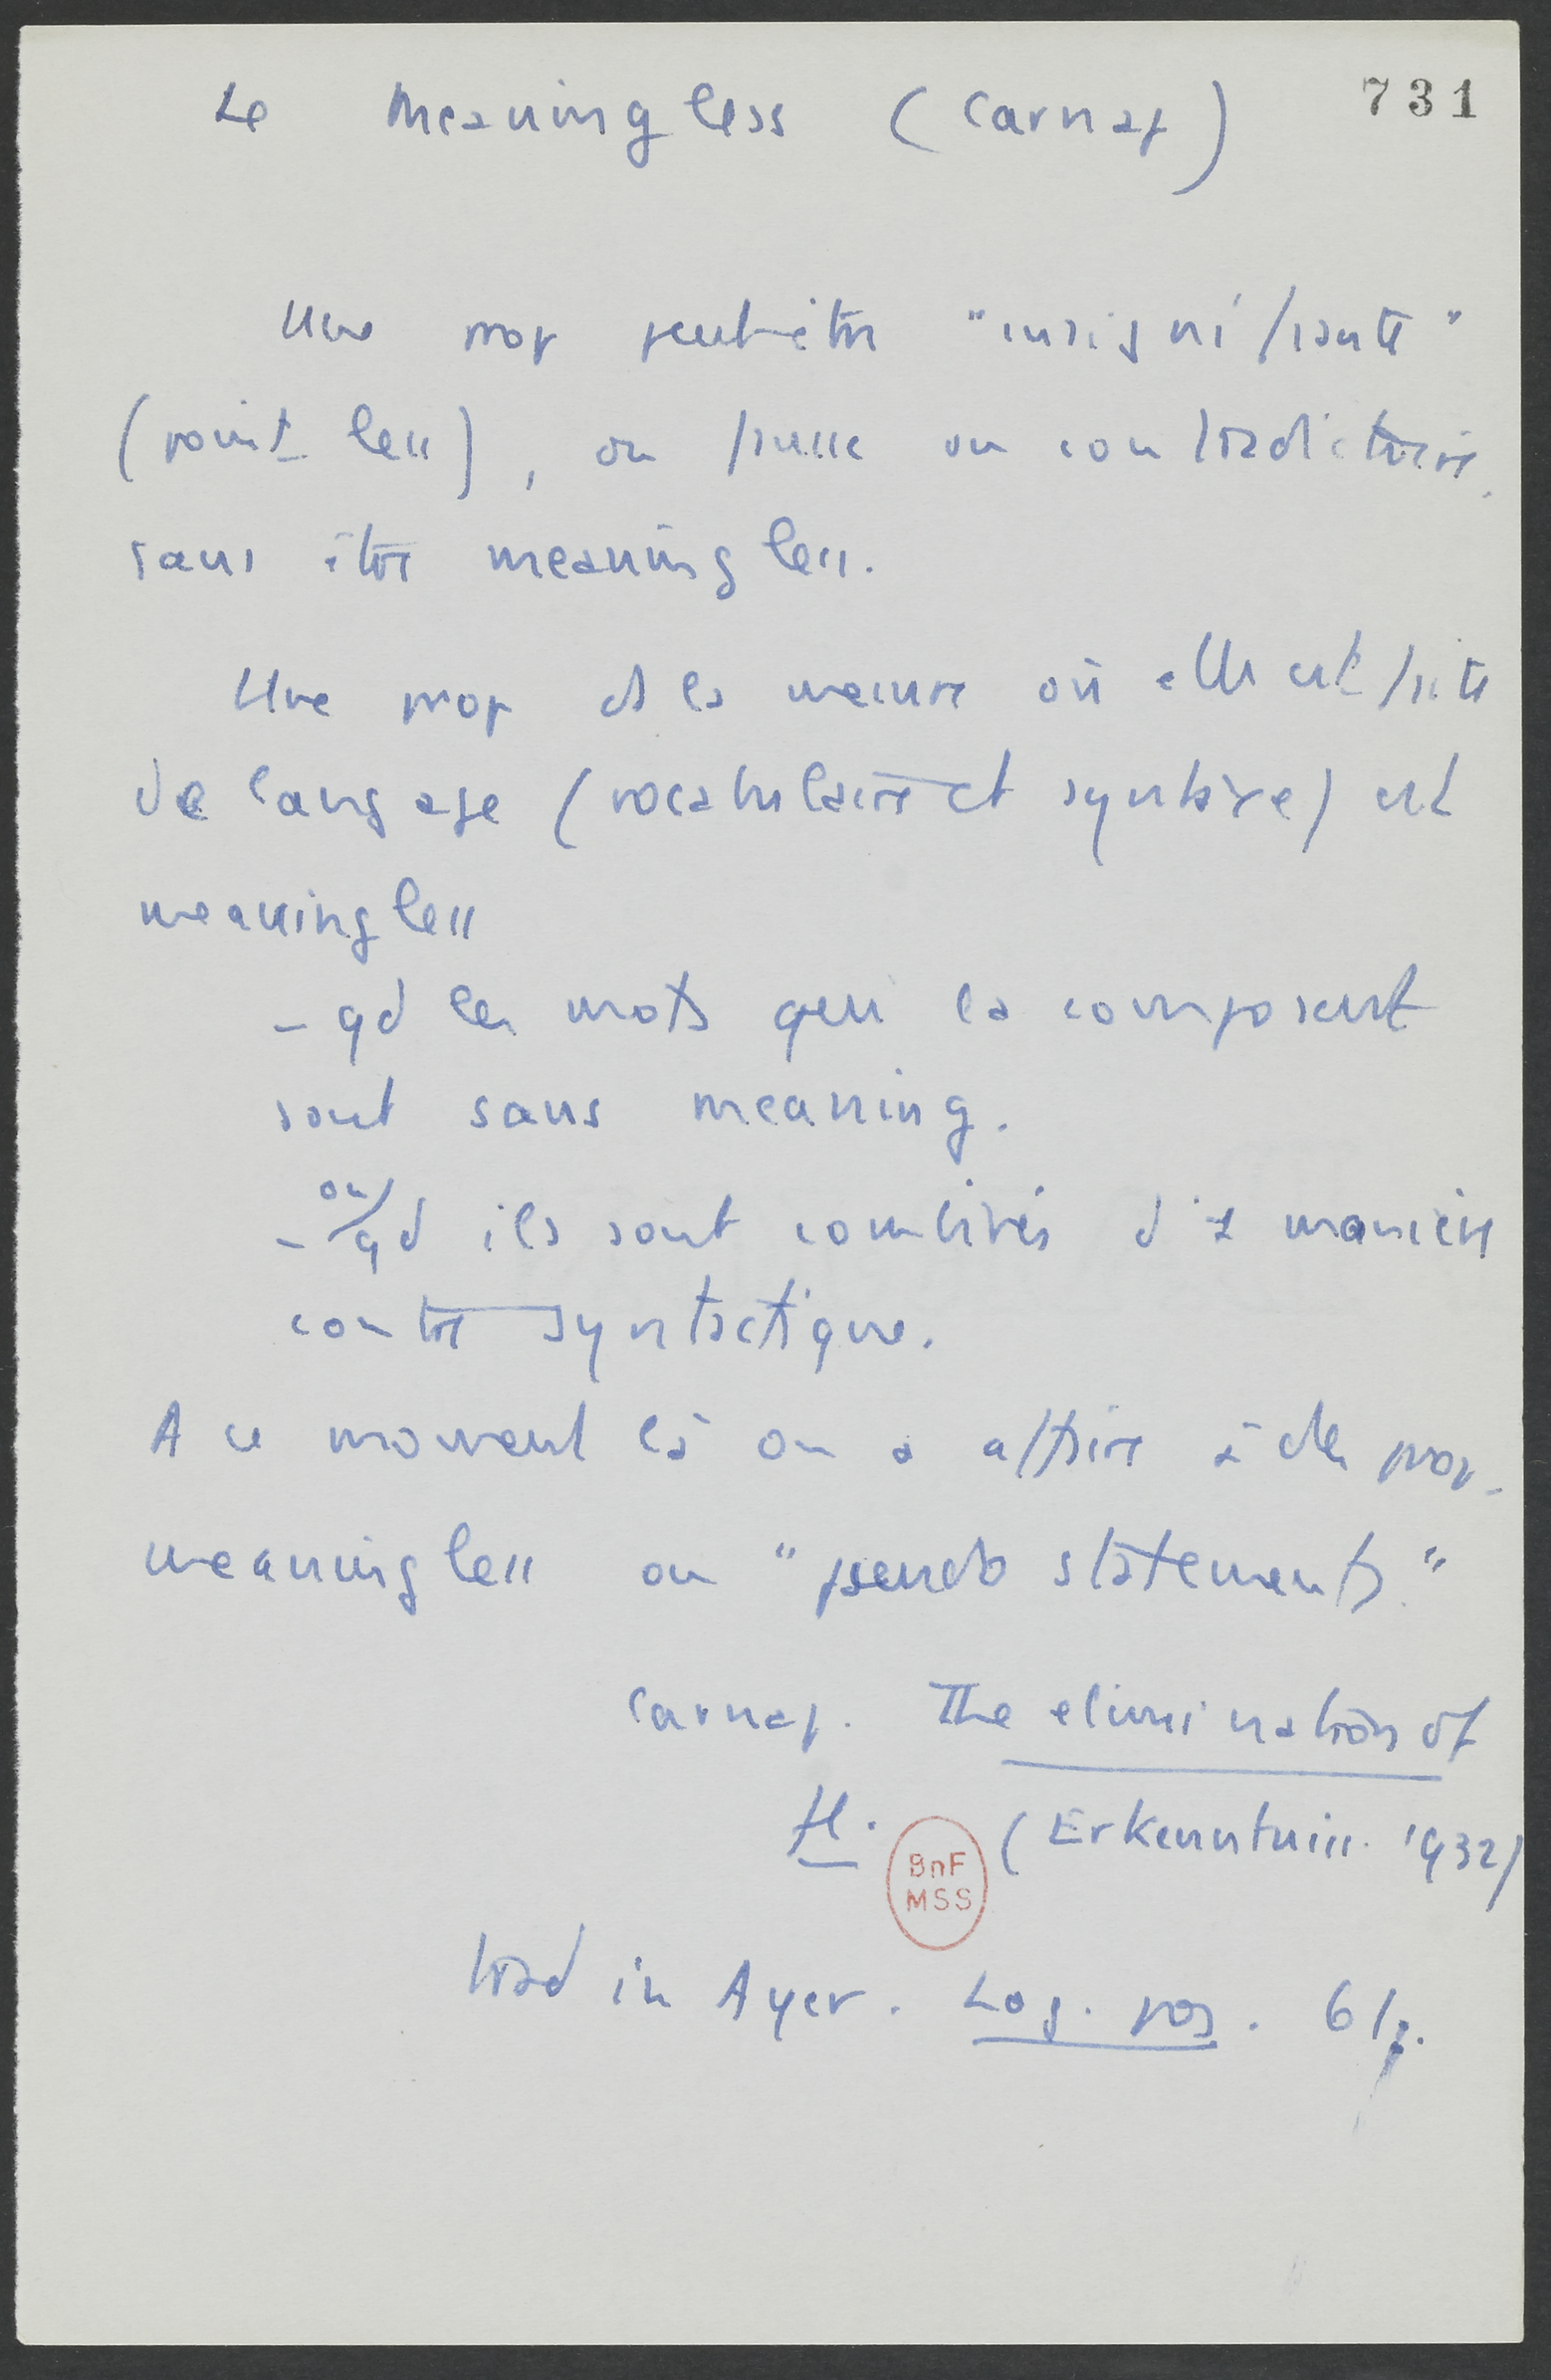 Le Meaningless (Carnap)
731
Une prop peut-être "insignifiante"
(point less), ou fausse ou contradictoire,
sans être meaningless.
Une prop ds la mesure où elle est faite
de langage (vocabulaire et syntaxe) est
meaningless
- qd les mots qui la composent
sont sans meaning.
- ou qd ils sont combinés d'1 manière
contre syntactique.
A ce moment là on a affaire à des prop.
meaningless ou "pseudo statements."
Carnap. The elimination of
M. (Erkenntniss. 1932)
BnF
MSS
trad in Ayer. Log. pos. 61